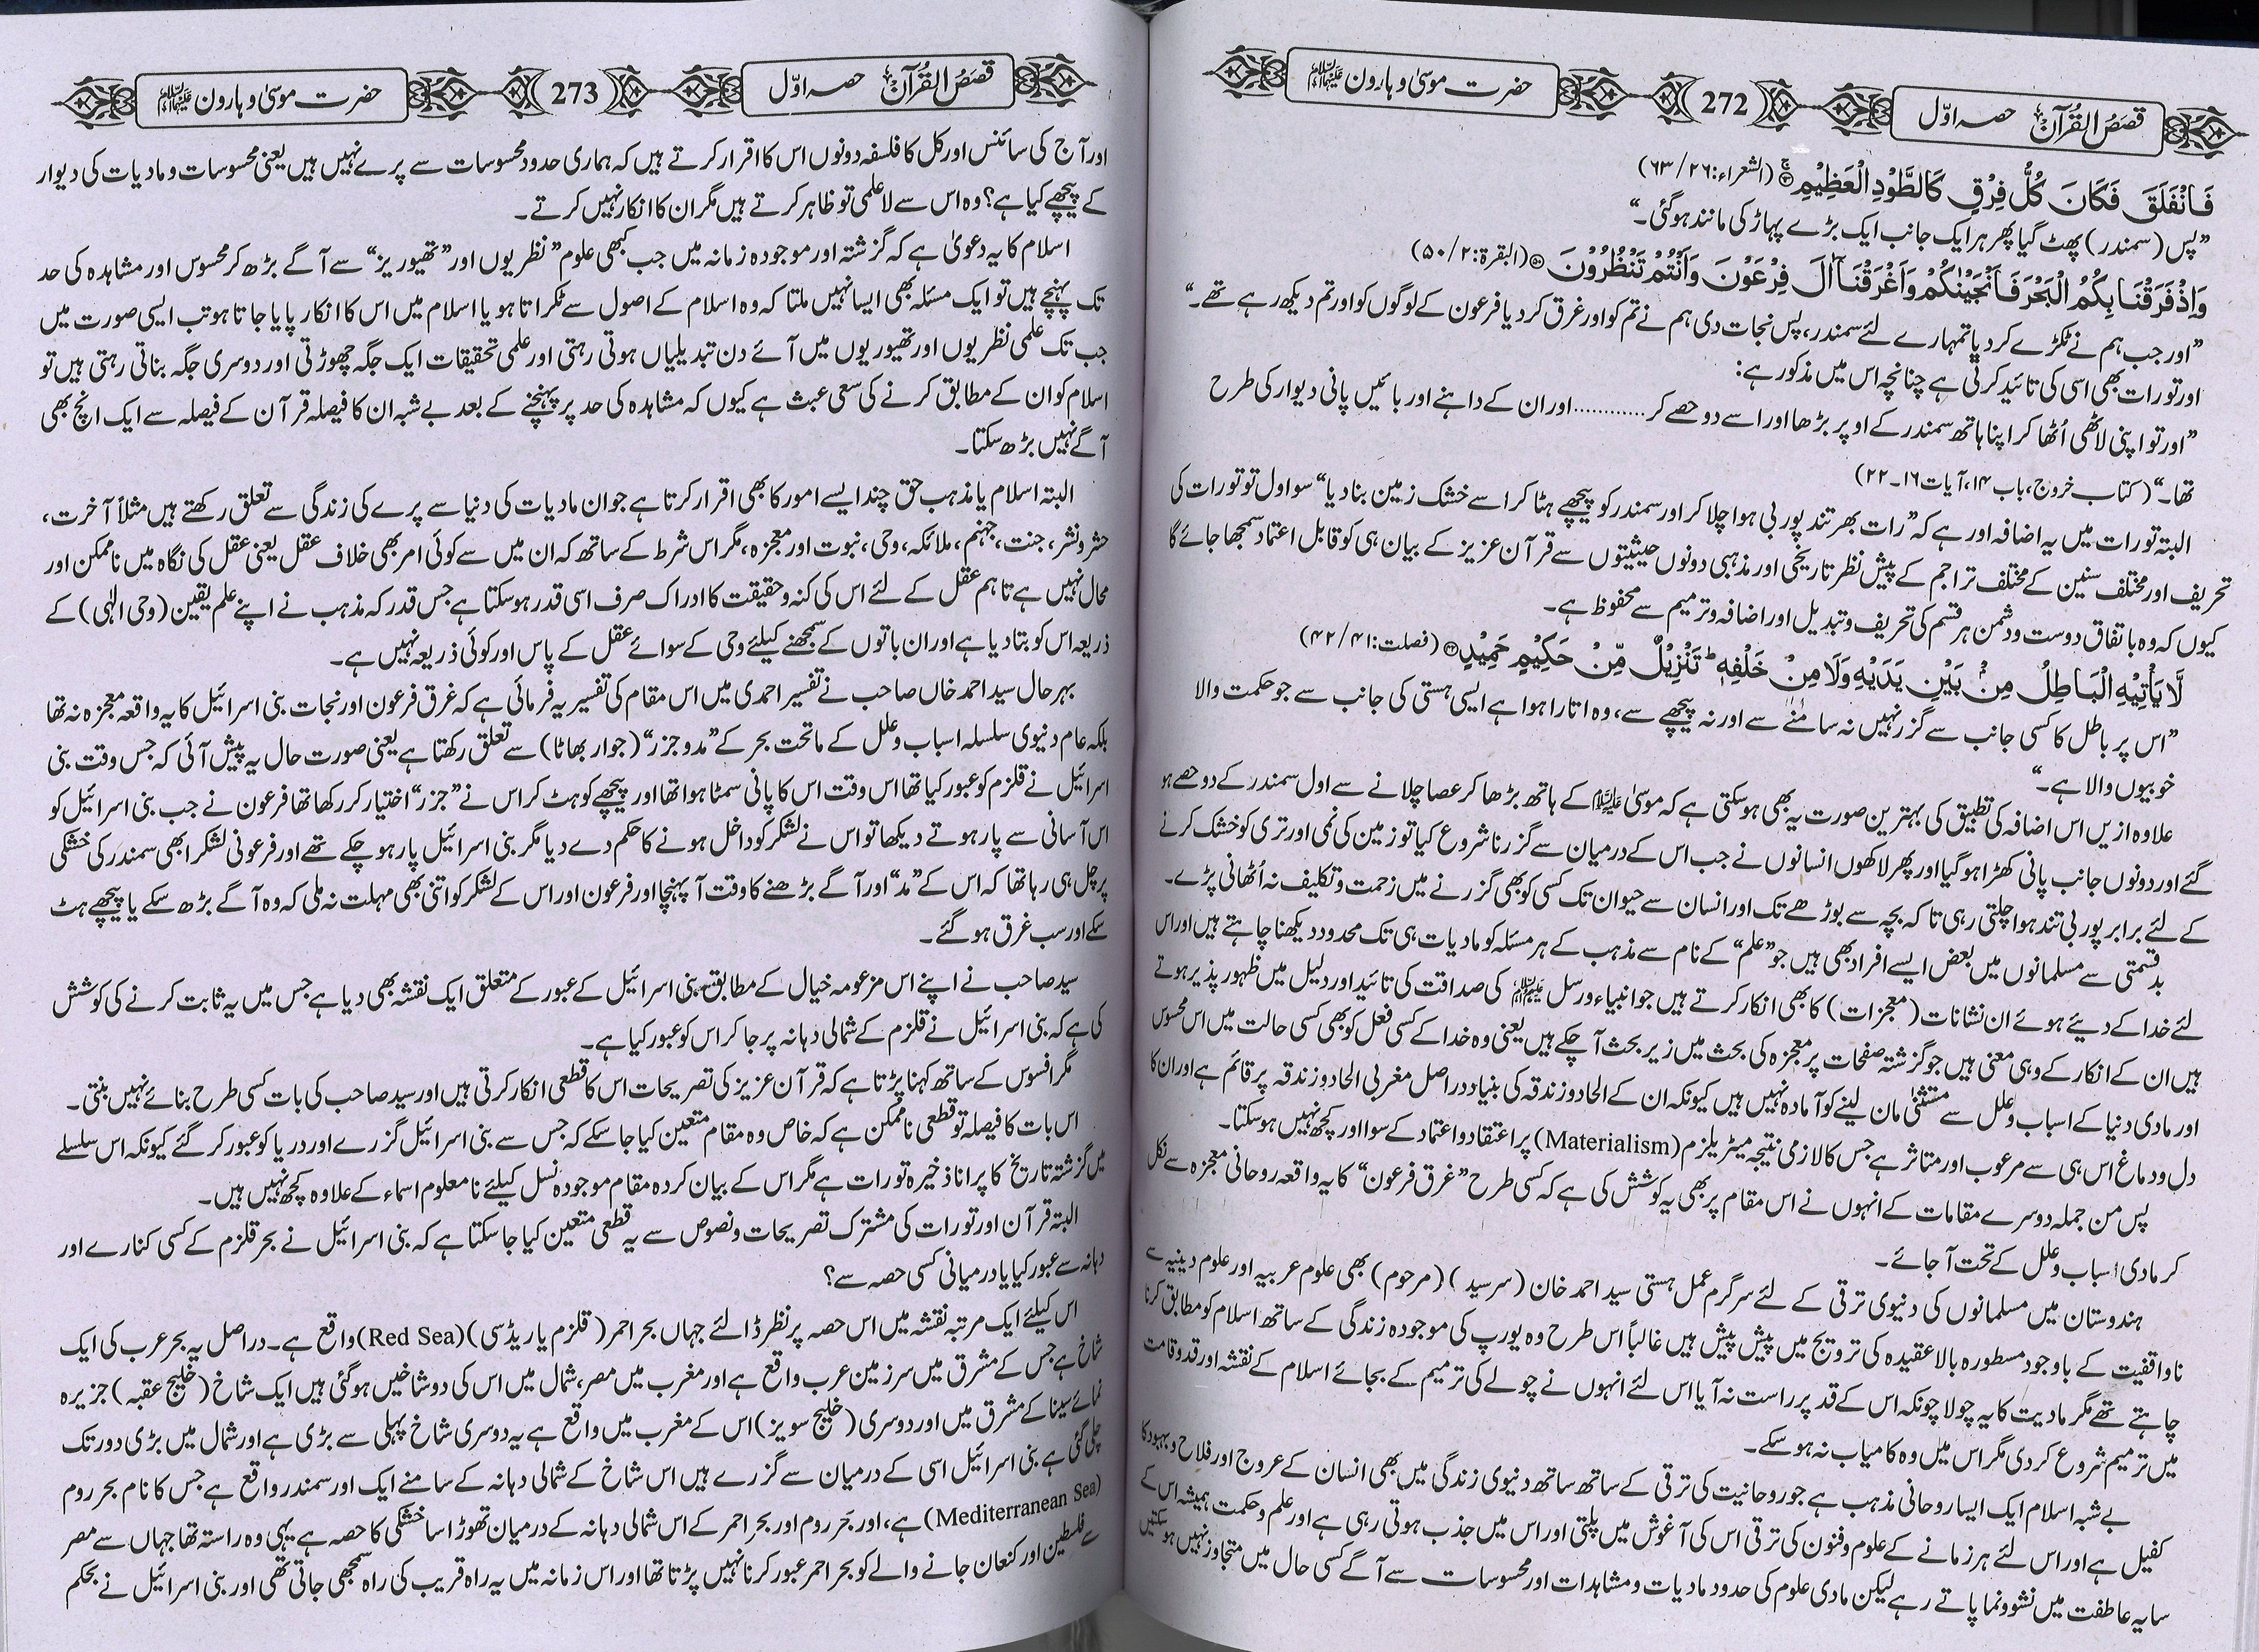 قصص القرآن حصہ اوّل 272 حضرت موسیٰ و ہارون علیہما السلام
فَانْفَلَقَ فَكَانَ كُلُّ فِرْقٍ كَالطَّوْدِ الْعَظِيْمِ ۚ﴿۶۳﴾ (الشعراء: ۲۶/ ۶۳)
”پس (سمندر) پھٹ گیا پھر ہر ایک جانب ایک بڑے پہاڑ کی مانند ہوگئی۔“
وَاِذْ فَرَقْنَا بِكُمُ الْبَحْرَ فَاَنْجَيْنٰكُمْ وَاَغْرَقْنَآ اٰلَ فِرْعَوْنَ وَاَنْتُمْ تَنْظُرُوْنَ ﴿۵۰﴾ (البقرۃ: ۲/ ۵۰)
”اور جب ہم نے ٹکڑے کر دیا تمہارے لئے سمندر، پس نجات دی ہم نے تم کو اور غرق کر دیا فرعون کے لوگوں کو اور تم دیکھ رہے تھے۔“
اور تورات بھی اسی کی تائید کرتی ہے چنانچہ اس میں مذکور ہے:
”اور تو اپنی لاٹھی اُٹھا کر اپنا ہاتھ سمندر کے اوپر بڑھا اور اسے دو حصے کر............ اور ان کے داہنے اور بائیں پانی دیوار کی طرح
تھا۔“ (کتاب خروج، باب ۱۴، آیات ۱۶۔۲۲)
البتہ تورات میں یہ اضافہ اور ہے کہ ”رات بھر تند پوربی ہوا چلا کر اور سمندر کو پیچھے ہٹا کر اسے خشک زمین بنا دیا“ سو اول تو تورات کی
تحریف اور مختلف سنین کے مختلف تراجم کے پیش نظر تاریخی اور مذہبی دونوں حیثیتوں سے قرآن عزیز کے بیان ہی کو قابل اعتماد سمجھا جائے گا
کیوں کہ وہ با تفاق دوست و دشمن ہر قسم کی تحریف و تبدیل اور اضافہ و ترمیم سے محفوظ ہے۔
لَّا يَاْتِيْهِ الْبَاطِلُ مِنْۢ بَيْنِ يَدَيْهِ وَلَا مِنْ خَلْفِهٖ ؕ تَنْزِيْلٌ مِّنْ حَكِيْمٍ حَمِيْدٍ ﴿۴۲﴾ (فصلت: ۴۱/ ۴۲)
”اس پر باطل کا کسی جانب سے گزر نہیں نہ سامنے سے اور نہ پیچھے سے، وہ اتارا ہوا ہے ایسی ہستی کی جانب سے جو حکمت والا
خوبیوں والا ہے۔“
علاوہ ازیں اس اضافہ کی تطبیق کی بہترین صورت یہ بھی ہو سکتی ہے کہ موسیٰ علیہ السلام کے ہاتھ بڑھا کر عصا چلانے سے اول سمندر کے دو حصے ہو
گئے اور دونوں جانب پانی کھڑا ہو گیا اور پھر لاکھوں انسانوں نے جب اس کے درمیان سے گزرنا شروع کیا تو زمین کی نمی اور تری کو خشک کرنے
کے لئے برابر پوربی تند ہوا چلتی رہی تا کہ بچہ سے بوڑھے تک اور انسان سے حیوان تک کسی کو بھی گزرنے میں زحمت و تکلیف نہ اُٹھانی پڑے۔
بد قسمتی سے مسلمانوں میں بعض ایسے افراد بھی ہیں جو ”علم“ کے نام سے مذہب کے ہر مسئلہ کو مادیات ہی تک محدود دیکھنا چاہتے ہیں اور اس
لئے خدا کے دیئے ہوئے ان نشانات (معجزات) کا بھی انکار کرتے ہیں جو انبیاء و رسل علیہم السلام کی صداقت کی تائید اور دلیل میں ظہور پذیر ہوتے
ہیں ان کے انکار کے وہی معنی ہیں جو گزشتہ صفحات پر معجزہ کی بحث میں زیر بحث آ چکے ہیں یعنی وہ خدا کے کسی فعل کو بھی کسی حالت میں اس محسوس
اور مادی دنیا کے اسباب و علل سے مستثنیٰ مان لینے کو آمادہ نہیں ہیں کیونکہ ان کے الحاد و زندقہ کی بنیاد دراصل مغربی الحاد و زندقہ پر قائم ہے اور ان کا
دل و دماغ اس ہی سے مرعوب اور متاثر ہے جس کا لازمی نتیجہ میٹریلزم (Materialism) پر اعتقاد و اعتماد کے سوا اور کچھ نہیں ہو سکتا۔
پس من جملہ دوسرے مقامات کے انہوں نے اس مقام پر بھی یہ کوشش کی ہے کہ کسی طرح ”غرق فرعون“ کا یہ واقعہ روحانی معجزہ سے نکل
کر مادی اسباب و علل کے تحت آ جائے۔
ہندوستان میں مسلمانوں کی دنیوی ترقی کے لئے سرگرم عمل ہستی سید احمد خان (سرسید) (مرحوم) بھی علوم عربیہ اور علوم دینیہ سے
ناواقفیت کے باوجود مسطورہ بالا عقیدہ کی ترویج میں پیش پیش ہیں غالباً اس طرح وہ یورپ کی موجودہ زندگی کے ساتھ اسلام کو مطابق کرنا
چاہتے تھے مگر مادیت کا یہ چولا چونکہ اس کے قد پر راست نہ آیا اس لئے انہوں نے چولے کی ترمیم کے بجائے اسلام کے نقشہ اور قد و قامت
میں ترمیم شروع کر دی مگر اس میں وہ کامیاب نہ ہو سکے۔
بے شبہ اسلام ایک ایسا روحانی مذہب ہے جو روحانیت کی ترقی کے ساتھ ساتھ دنیوی زندگی میں بھی انسان کے عروج اور فلاح و بہبود کا
کفیل ہے اور اس لئے ہر زمانے کے علوم و فنون کی ترقی اس کی آغوش میں پلتی اور اس میں جذب ہوتی رہی ہے اور علم و حکمت ہمیشہ اس کے
سایہ عاطفت میں نشوونما پاتے رہے لیکن مادی علوم کی حدود مادیات و مشاہدات اور محسوسات سے آگے کسی حال میں متجاوز نہیں ہو سکتیں
قصص القرآن حصہ اوّل 273 حضرت موسیٰ و ہارون علیہما السلام
اور آج کی سائنس اور کل کا فلسفہ دونوں اس کا اقرار کرتے ہیں کہ ہماری حدود محسوسات سے پرے نہیں ہیں یعنی محسوسات و مادیات کی دیوار
کے پیچھے کیا ہے؟ وہ اس سے لاعلمی تو ظاہر کرتے ہیں مگر ان کا انکار نہیں کرتے۔
اسلام کا یہ دعویٰ ہے کہ گزشتہ اور موجودہ زمانہ میں جب کبھی علوم ”نظریوں اور ”تھیوریز“ سے آگے بڑھ کر محسوس اور مشاہدہ کی حد
تک پہنچے ہیں تو ایک مسئلہ بھی ایسا نہیں ملتا کہ وہ اسلام کے اصول سے ٹکراتا ہو یا اسلام میں اس کا انکار پایا جاتا ہو تب ایسی صورت میں
جب تک علمی نظریوں اور تھیوریوں میں آئے دن تبدیلیاں ہوتی رہتی اور علمی تحقیقات ایک جگہ چھوڑتی اور دوسری جگہ بناتی رہتی ہیں تو
اسلام کو ان کے مطابق کرنے کی سعی عبث ہے کیوں کہ مشاہدہ کی حد پر پہنچنے کے بعد بے شبہ ان کا فیصلہ قرآن کے فیصلہ سے ایک انچ بھی
آگے نہیں بڑھ سکتا۔
البتہ اسلام یا مذہب حق چند ایسے امور کا بھی اقرار کرتا ہے جو ان مادیات کی دنیا سے پرے کی زندگی سے تعلق رکھتے ہیں مثلاً آخرت،
حشر و نشر، جنت، جہنم، ملائکہ، وحی، نبوت اور معجزہ، مگر اس شرط کے ساتھ کہ ان میں سے کوئی امر بھی خلاف عقل یعنی عقل کی نگاہ میں ناممکن اور
محال نہیں ہے تاہم عقل کے لئے اس کی کنہ و حقیقت کا ادراک صرف اسی قدر ہو سکتا ہے جس قدر کہ مذہب نے اپنے علم یقین (وحی الٰہی) کے
ذریعہ اس کو بتا دیا ہے اور ان باتوں کے سمجھنے کیلئے وحی کے سوائے عقل کے پاس اور کوئی ذریعہ نہیں ہے۔
بہر حال سید احمد خاں صاحب نے تفسیر احمدی میں اس مقام کی تفسیر یہ فرمائی ہے کہ غرق فرعون اور نجات بنی اسرائیل کا یہ واقعہ معجزہ نہ تھا
بلکہ عام دنیوی سلسلہ اسباب و علل کے ماتحت بحر کے ”مد و جزر“ (جوار بھاٹا) سے تعلق رکھتا ہے یعنی صورت حال یہ پیش آئی کہ جس وقت بنی
اسرائیل نے قلزم کو عبور کیا تھا اس وقت اس کا پانی سمٹا ہوا تھا اور پیچھے کو ہٹ کر اس نے ”جزر“ اختیار کر رکھا تھا فرعون نے جب بنی اسرائیل کو
اس آسانی سے پار ہوتے دیکھا تو اس نے لشکر کو داخل ہونے کا حکم دے دیا مگر بنی اسرائیل پار ہو چکے تھے اور فرعونی لشکر ابھی سمندر کی خشکی
پر چل ہی رہا تھا کہ اس کے ”مد“ اور آگے بڑھنے کا وقت آ پہنچا اور فرعون اور اس کے لشکر کو اتنی بھی مہلت نہ ملی کہ وہ آگے بڑھ سکے یا پیچھے ہٹ
سکے اور سب غرق ہو گئے۔
سید صاحب نے اپنے اس مزعومہ خیال کے مطابق بنی اسرائیل کے عبور کے متعلق ایک نقشہ بھی دیا ہے جس میں یہ ثابت کرنے کی کوشش
کی ہے کہ بنی اسرائیل نے قلزم کے شمالی دہانہ پر جا کر اس کو عبور کیا ہے۔
مگر افسوس کے ساتھ کہنا پڑتا ہے کہ قرآن عزیز کی تصریحات اس کا قطعی انکار کرتی ہیں اور سید صاحب کی بات کسی طرح بنائے نہیں بنتی۔
اس بات کا فیصلہ تو قطعی ناممکن ہے کہ خاص وہ مقام متعین کیا جا سکے کہ جس سے بنی اسرائیل گزرے اور دریا کو عبور کر گئے کیونکہ اس سلسلے
میں گزشتہ تاریخ کا پرانا ذخیرہ تورات ہے مگر اس کے بیان کردہ مقام موجودہ نسل کیلئے نامعلوم اسماء کے علاوہ کچھ نہیں ہیں۔
البتہ قرآن اور تورات کی مشترک تصریحات و نصوص سے یہ قطعی متعین کیا جا سکتا ہے کہ بنی اسرائیل نے بحر قلزم کے کسی کنارے اور
دہانہ سے عبور کیا یا درمیانی کسی حصہ سے؟
اس کیلئے ایک مرتبہ نقشہ میں اس حصہ پر نظر ڈالئے جہاں بحر احمر (قلزم یا ریڈسی) (Red Sea) واقع ہے۔ دراصل یہ بحر عرب کی ایک
شاخ ہے جس کے مشرق میں سرزمین عرب واقع ہے اور مغرب میں مصر، شمال میں اس کی دو شاخیں ہو گئی ہیں ایک شاخ (خلیج عقبہ) جزیرہ
نمائے سینا کے مشرق میں اور دوسری (خلیج سویز) اس کے مغرب میں واقع ہے یہ دوسری شاخ پہلی سے بڑی ہے اور شمال میں بڑی دور تک
چلی گئی ہے بنی اسرائیل اسی کے درمیان سے گزرے ہیں اس شاخ کے شمالی دہانہ کے سامنے ایک اور سمندر واقع ہے جس کا نام بحر روم
(Mediterranean Sea) ہے، اور بحر روم اور بحر احمر کے اس شمالی دہانہ کے درمیان تھوڑا سا خشکی کا حصہ ہے یہی وہ راستہ تھا جہاں سے مصر
سے فلسطین اور کنعان جانے والے کو بحر احمر عبور کرنا نہیں پڑتا تھا اور اس زمانہ میں یہ راہ قریب کی راہ سمجھی جاتی تھی اور بنی اسرائیل نے بحکم